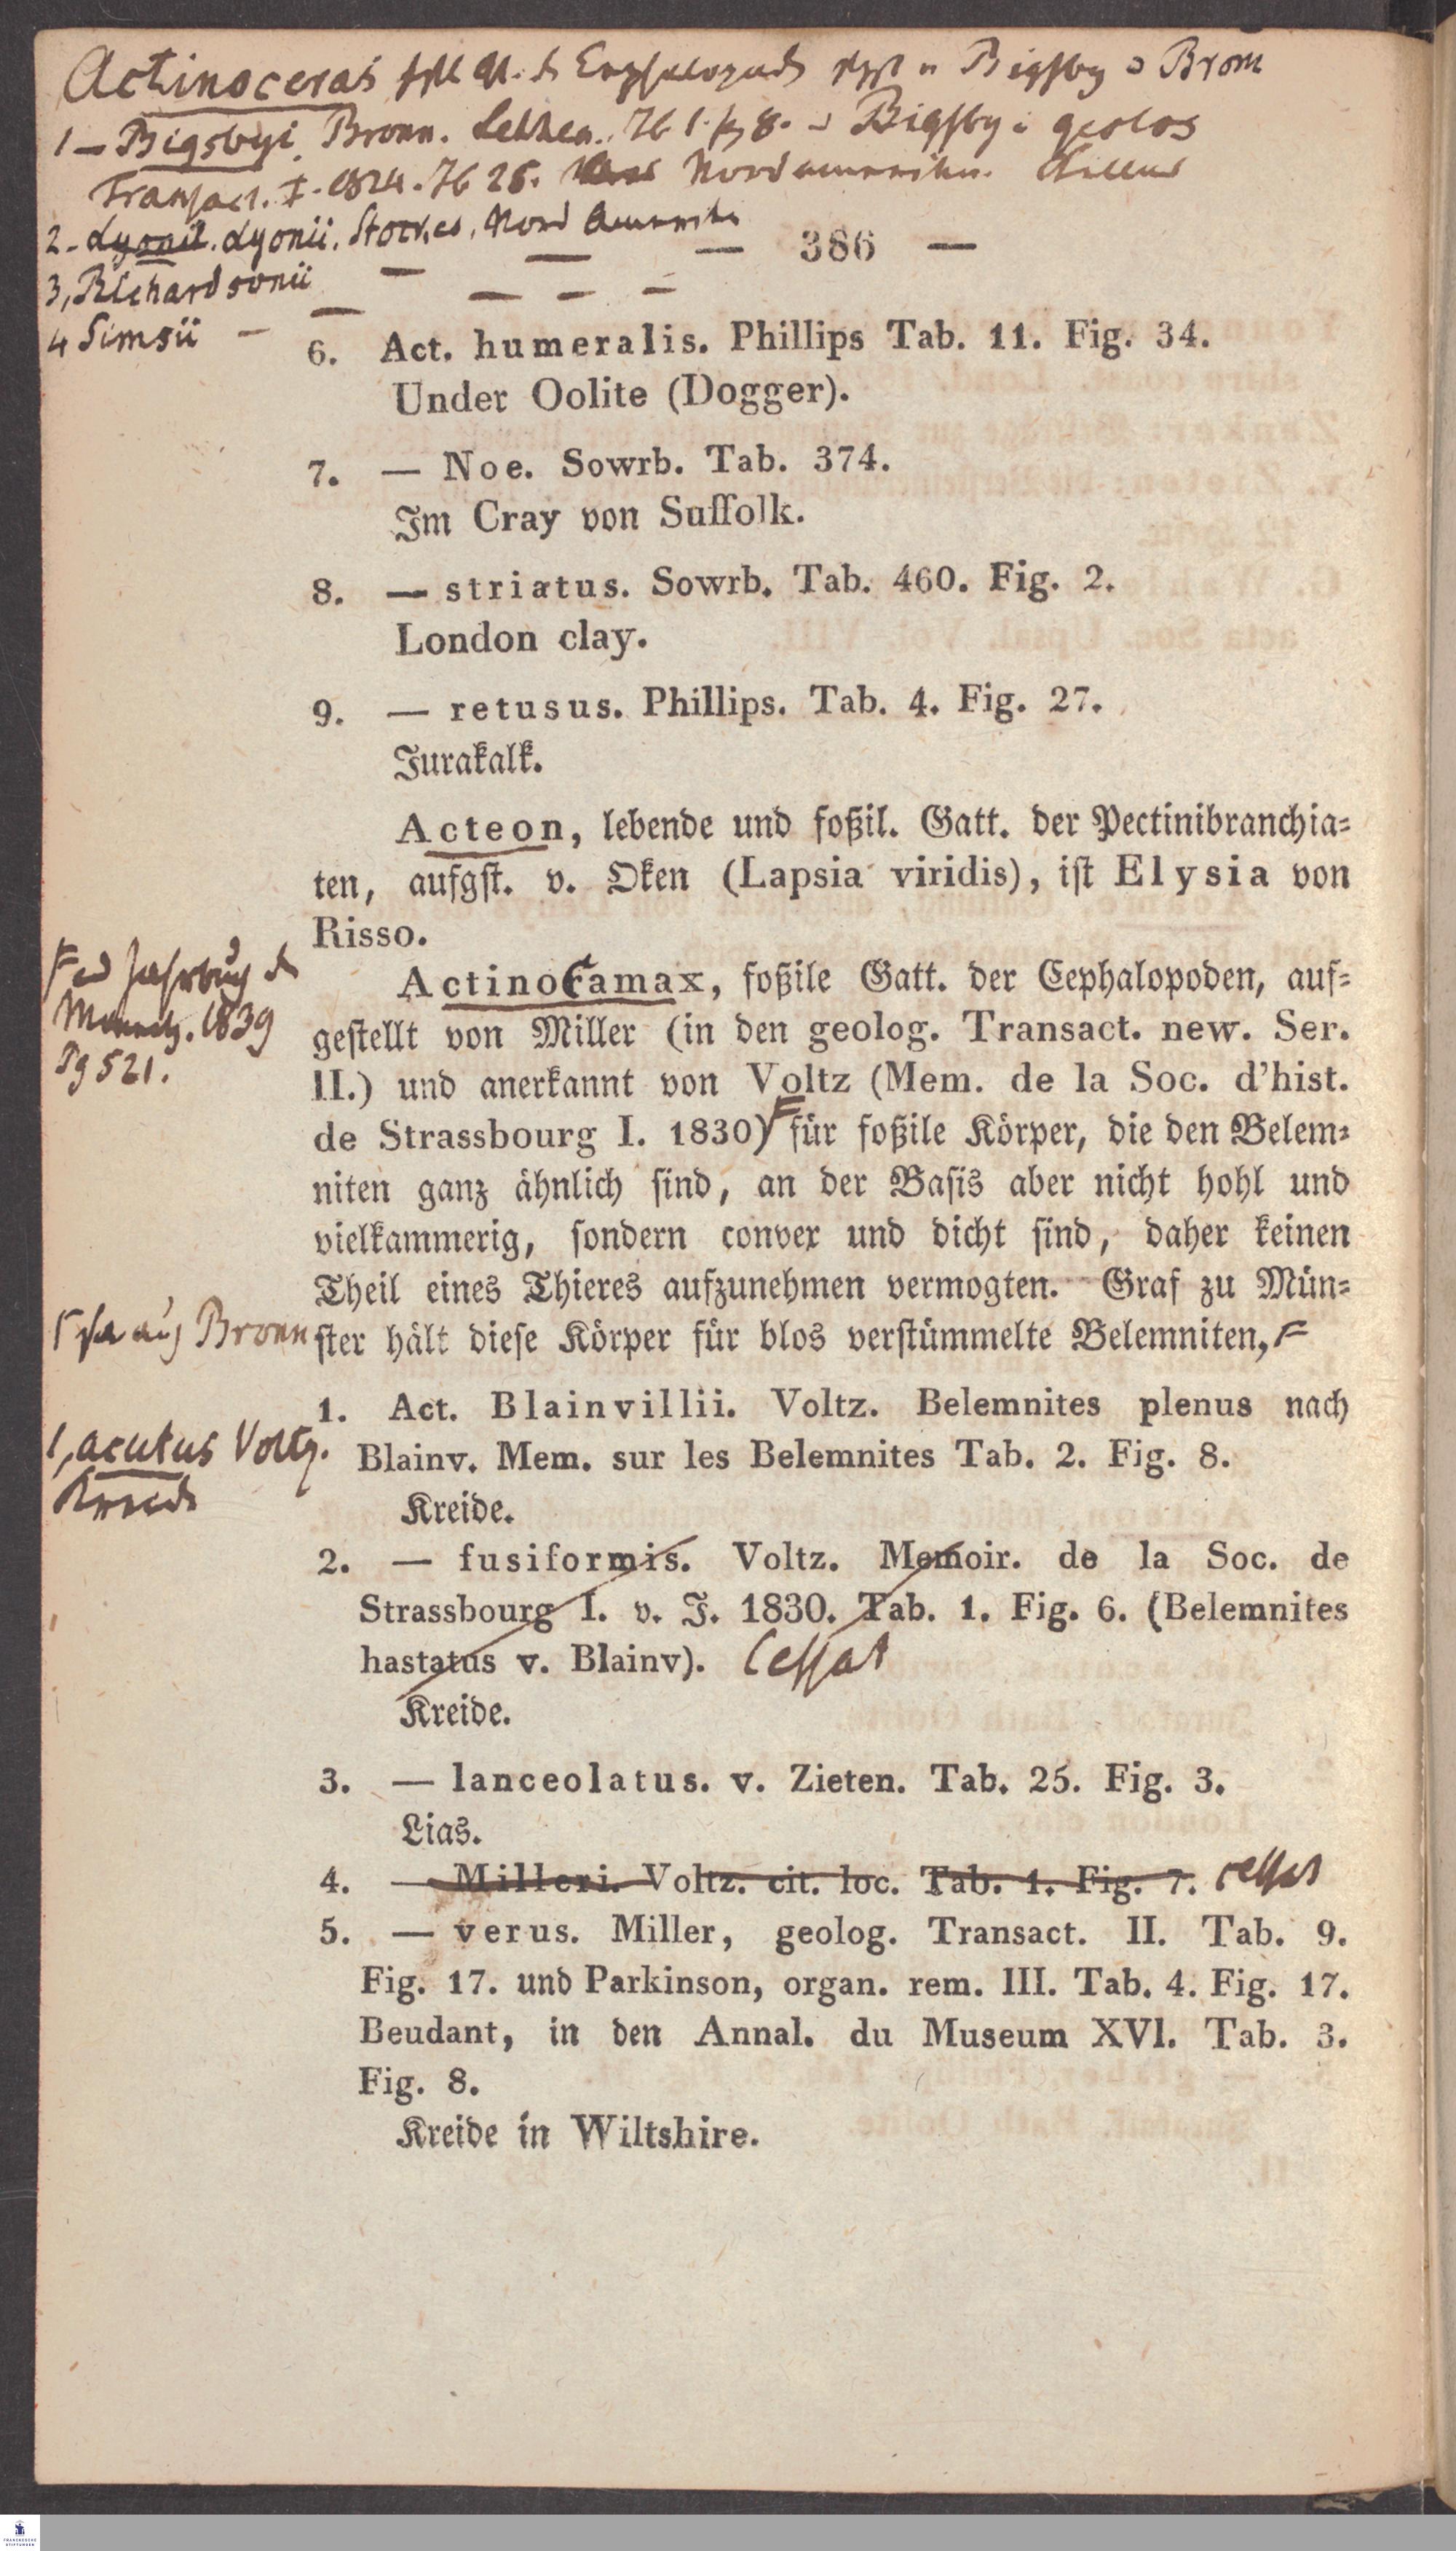 Actinoceras foss. Gt. d. Cephalopod. v. Bigsby u Bronn
1 – Bigsbyi. Bronn. Lethea. Tb 1. fg 8. – Bigsby i geolog
Transact. I. 1824. Tb 25. Nordamerika.
2 – Lyonii. Stockes. Nord Amerika
3, Richardsonii — — —
4 Simsii — — — —
— 386 —
6. Act. humeralis. Phillips Tab. 11. Fig. 34.
Under Oolite (Dogger).
7. — Noe. Sowrb. Tab. 374.
Im Cray von Suffolk.
8. — striatus. Sowrb. Tab. 460. Fig. 2.
London clay.
9. — retusus. Phillips. Tab. 4. Fig. 27.
Jurakalk.
Acteon, lebende und foßil. Gatt. der Pectinibranchia-
ten, aufgst. v. Oken (Lapsia viridis), ist Elysia von
Risso.
Jahrbuch d
1839
Pg 521.
Actinocamax, foßile Gatt. der Cephalopoden, auf-
gestellt von Miller (in den geolog. Transact. new. Ser.
II.) und anerkannt von Voltz (Mem. de la Soc. d'hist.
de Strassbourg I. 1830) für foßile Körper, die den Belem-
niten ganz ähnlich sind, an der Basis aber nicht hohl und
vielkammerig, sondern convex und dicht sind, daher keinen
Theil eines Thieres aufzunehmen vermogten. Graf zu Mün-
ster hält diese Körper für blos verstümmelte Belemniten,
auch Bronn
1. Act. Blainvillii. Voltz. Belemnites plenus nach
Blainv. Mem. sur les Belemnites Tab. 2. Fig. 8.
Kreide.
1, acutus Voltz.
Kreide
2. — fusiformis. Voltz. Memoir. de la Soc. de
Strassbourg I. v. J. 1830. Tab. 1. Fig. 6. (Belemnites
hastatus v. Blainv). Cessat
Kreide.
3. — lanceolatus. v. Zieten. Tab. 25. Fig. 3.
Lias.
4. — Milleri. Voltz. cit. loc. Tab. 1. Fig. 7. cessat
5. — verus. Miller, geolog. Transact. II. Tab. 9.
Fig. 17. und Parkinson, organ. rem. III. Tab. 4. Fig. 17.
Beudant, in den Annal. du Museum XVI. Tab. 3.
Fig. 8.
Kreide in Wiltshire.
FRANCKESCHE
STIFTUNGEN